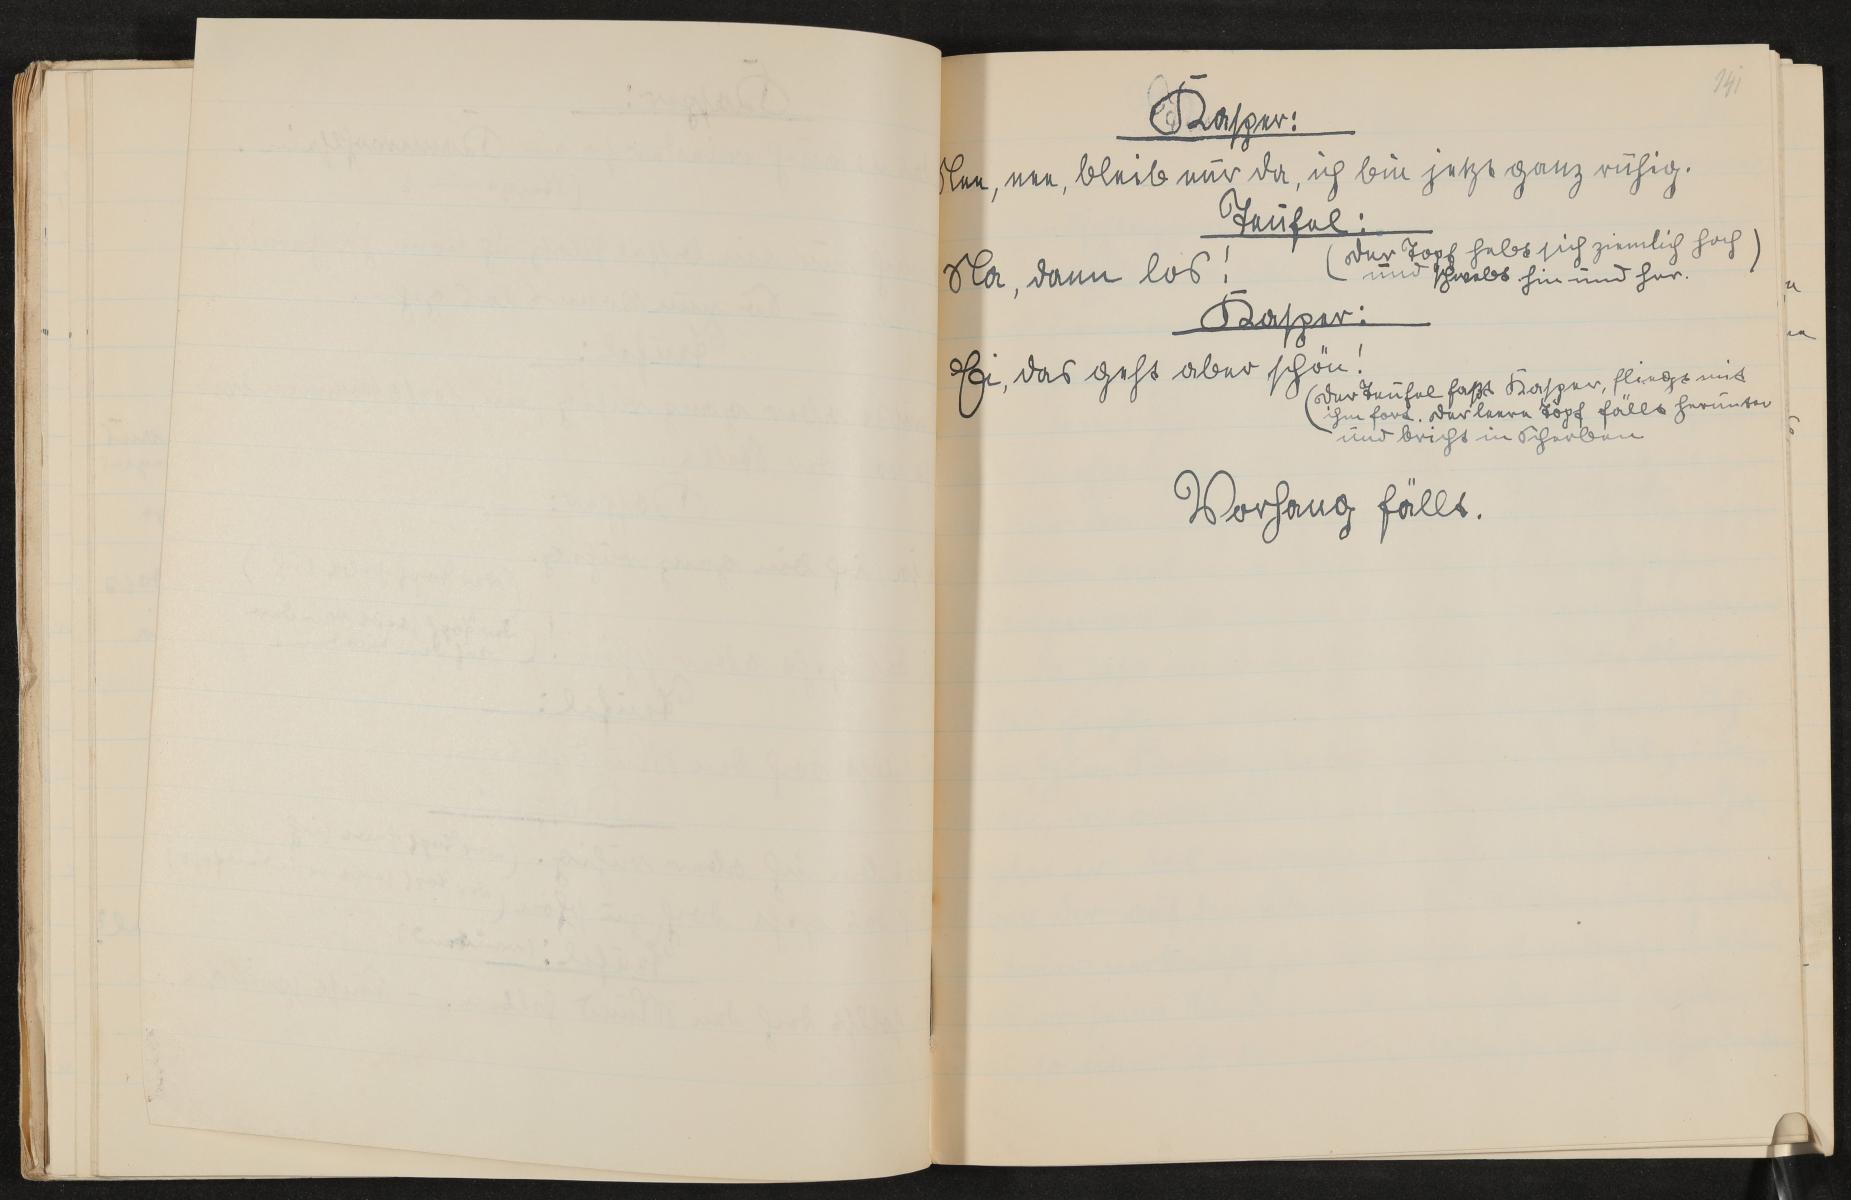 141
Kasper:
Nee, nee, bleib nur da, ich bin jetzt ganz ruhig.
Teufel:
Na, dann los! (Der Topf hebt sich ziemlich hoch
und schwebt hin und her.)
Kasper:
Ei, das geht aber schön!
(Der Teufel faßt Kasper, fliegt mit
ihm fort. Der leere Topf fällt herunter
und bricht in Scherben
Vorhang fällt.